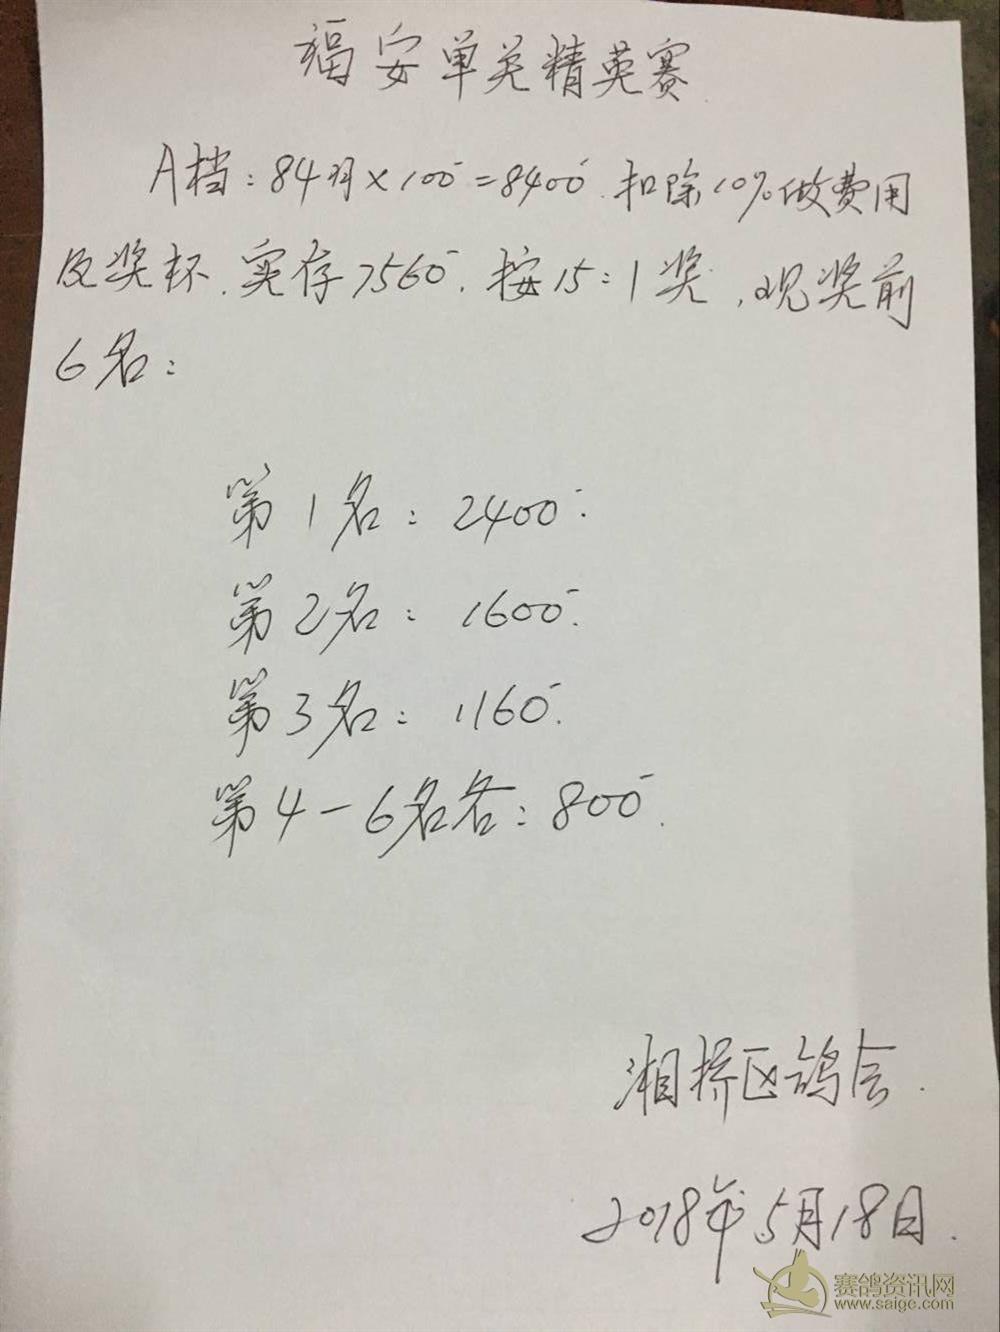 福安单关精英赛
A档：84羽×100=8400.扣除10%做费用
及奖杯.实存7560.按15:1奖,现奖前
6名：
第1名：2400.
第2名：1600.
第3名：1160.
第4-6名各：800.
湘桥区鸽会.
2018年5月18日.
赛鸽资讯网
www.saige.com